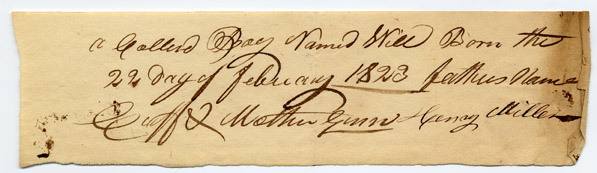 a Collerd Boy Named Will Born the
22 Day of february 1823 fathers Name
Cuff & Mother Henry Miller